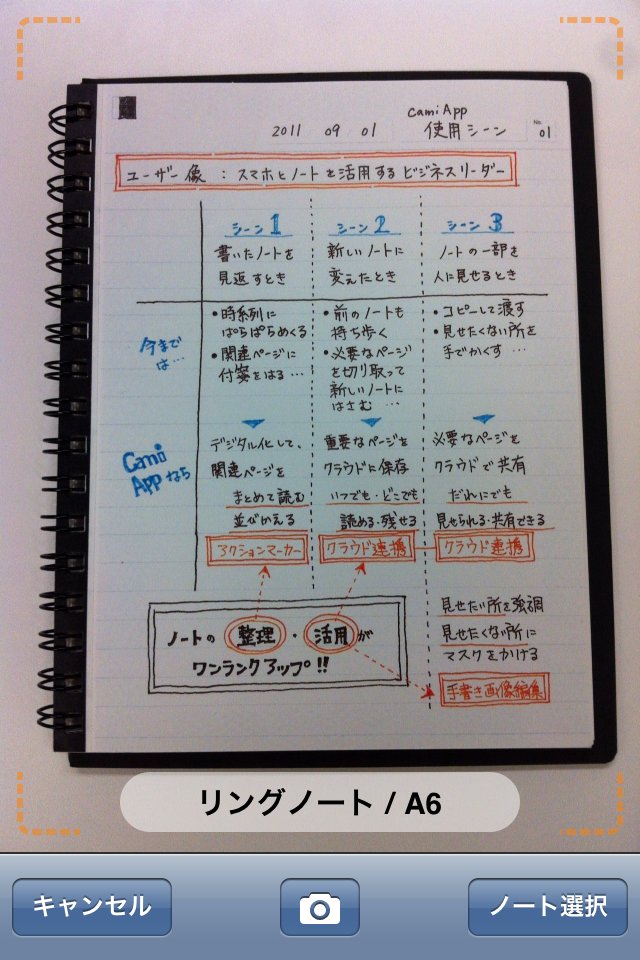 camiApp
2011 09 01 使用シーン No. 01
ユーザー像 : スマホとノートを活用するビジネスリーダー
シーン1
書いたノートを
見返すとき
シーン2
新しいノートに
変えたとき
シーン3
ノートの一部を
人に見せるとき
今まで
は…
・時系列に
ぱらぱらめくる
・関連ページに
付箋をはる…
・前のノートも
持ち歩く
・必要なページ
を切り取って
新しいノートに
はさむ …
・コピーして渡す
・見せたくない所を
手でかくす …
Cami
Appなら
デジタル化して、
関連ページを
まとめて読む
並びかえる
アクションマーカー
重要なページを
クラウドに保存
いつでも・どこでも
読める・残せる
クラウド連携
必要なページを
クラウドで共有
だれにでも
見せられる・共有できる
クラウド連携
見せたい所を強調
見せたくない所に
マスクをかける
手書き画像編集
ノートの 整理 ・ 活用 が
ワンランクアップ!!
リングノート / A6
キャンセル
ノート選択